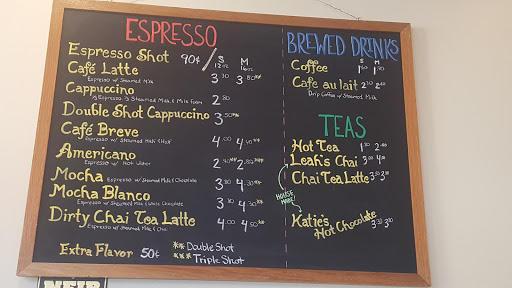 ESPRESSO
S M
12oz 16oz
Espresso Shot 90¢
Café Latte 3.30 3.80**
Espresso w/ Steamed Milk
Cappuccino 2.80
⅓ Espresso ⅓ Steamed Milk, & Milk Foam
Double Shot Cappuccino 3.50**
Café Breve 4.00 4.50**
Espresso w/ Steamed Half & Half
Americano 2.30** 2.80***
Espresso w/ Hot Water
Mocha Espresso w/ Steamed Milk & Chocolate 3.80 4.30**
Mocha Blanco 3.80 4.30**
Espresso w/ Steamed Milk & White Chocolate
Dirty Chai Tea Latte 4.00 4.50**
Espresso w/ Steamed Milk & Chai
Extra Flavor 50¢
** Double Shot
*** Triple Shot
BREWED DRINKS
S M
Coffee
Cafe au lait
Drip Coffee w/ Steamed Milk
TEAS
Hot Tea
Leah's Chai
Chai Tea Latte
HOUSE MADE!
Katie's
Hot Chocolate